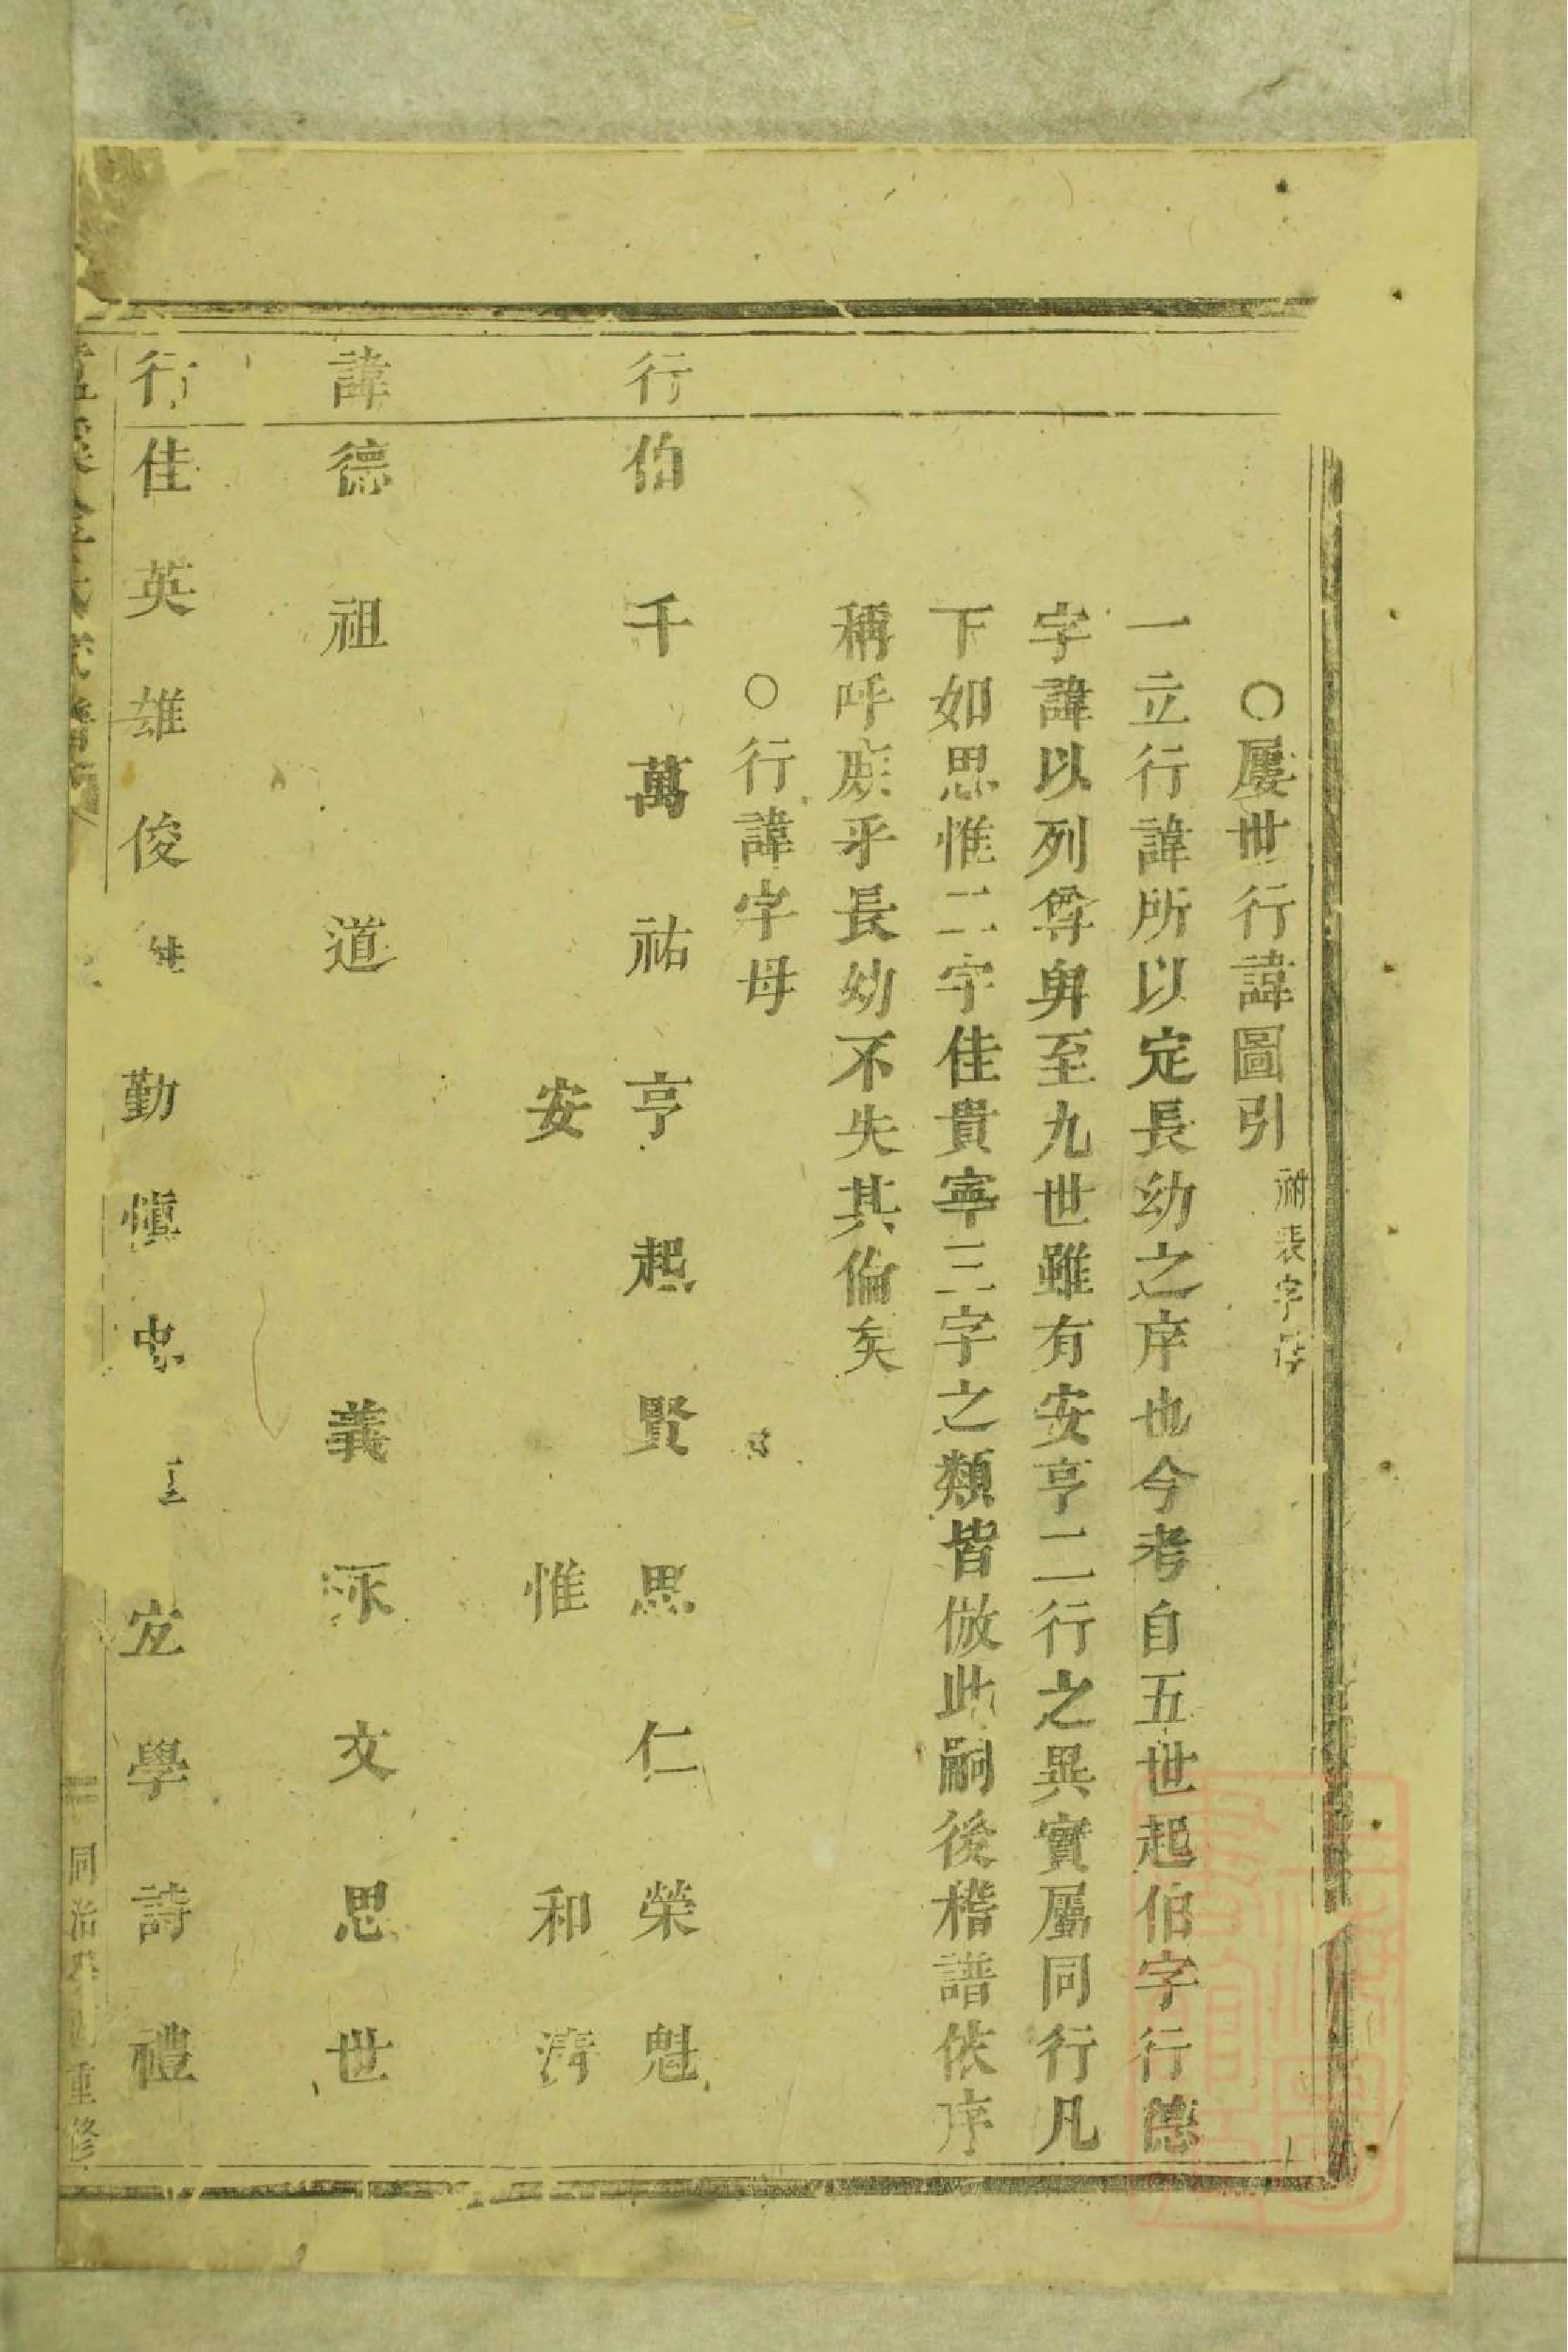 ○屢世行諱圖引 附表字序
一立行諱所以定長幼之序也今考自五世起伯字行德
字諱以列尊與至九世雖有安亨二行之異實屬同行凡
下如思惟二字佳貴寧三字之類皆倣此嗣後稽譜依序
稱呼庶乎長幼不失其倫矣
○行諱字母
行 伯 千 萬 祐 亨 起 賢 思 仁 榮 魁
安 惟 和 清
諱 德 祖 道 義 永 文 思 世
行 佳 英 雄 俊 勤 慎 忠 宜 學 詩 禮
同治 重修